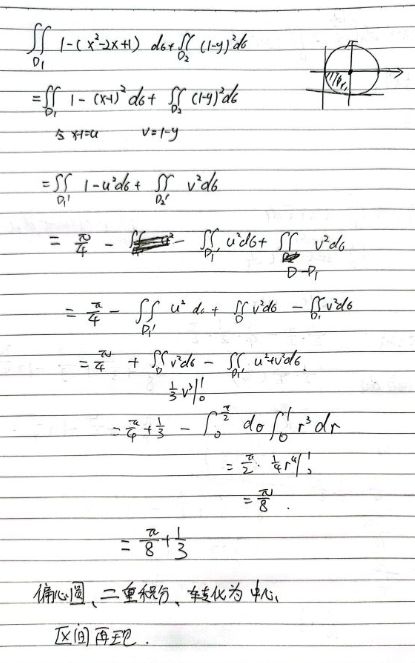 ∬_{D₁} 1-(x²-2x+1) dσ + ∬_{D₂} (1-y)² dσ
= ∬_{D₁} 1-(x-1)² dσ + ∬_{D₂} (1-y)² dσ
令 x-1=u v=1-y
= ∬_{D₁'} 1-u² dσ + ∬_{D₂'} v² dσ
= π/4 - ∬_{D₁'} u² dσ + ∬_{D-D₁} v² dσ
= π/4 - ∬_{D₁'} u² dσ + ∬_D v² dσ - ∬_{D₁} v² dσ
= π/4 + ∬_D v² dσ - ∬_{D₁'} u²+v² dσ.
1/3 v³|₀¹
= π/4 + 1/3 - ∫₀^{π/2} dσ ∫₀¹ r³ dr
= π/2 · 1/4 r⁴|₀¹
= π/8 .
= π/8 + 1/3
偏心圆、二重积分、转化为中心,
区间再现.